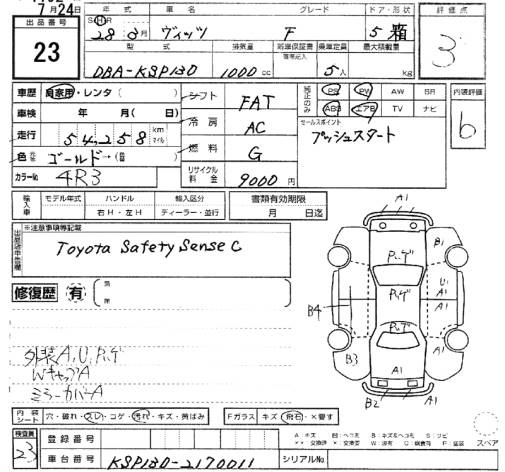 7月24日
出品番号
23
年式 車名 グレード ドア・形状
28年 3月 ヴィッツ F 5 箱
型式 排気量 新車保証書 乗車定員 最大積載量
DBA-KSP130 1000cc 5人 kg
評価点
3
車歴 自家用・レンタ( )
車検 年 月( 日)
走行 54,258 km マイル
色 元色 ゴールド→( 色)
カラーNo 4R3
シフト FAT
冷房 AC
燃料 G
リサイクル料金 9000円
純正のみ PS PW AW SR
ABS エアB TV ナビ
セールスポイント
プッシュスタート
内装評価
b
輸入車 モデル年式 ハンドル 輸入区分
右H・左H ディーラー・並行
書類有効期限
月 日迄
出品店申告欄
※注意事項等記載
Toyota Safety Sense C
修復歴 有
外装A,U,Pッゲ
WキャップA
ミラーカバーA
A1
B1
Pッゲ
U1
A1
Pッゲ
B4
A1
Pッゲ
B3
A1
A1
B2
A1
内装シート 穴・破れ・スレ・コゲ・汚れ・キズ・黄ばみ
Fガラス キズ・飛石・×要す
スペア
検査員
23
登録番号
車台番号 KSP130-2170011
シリアルNo.